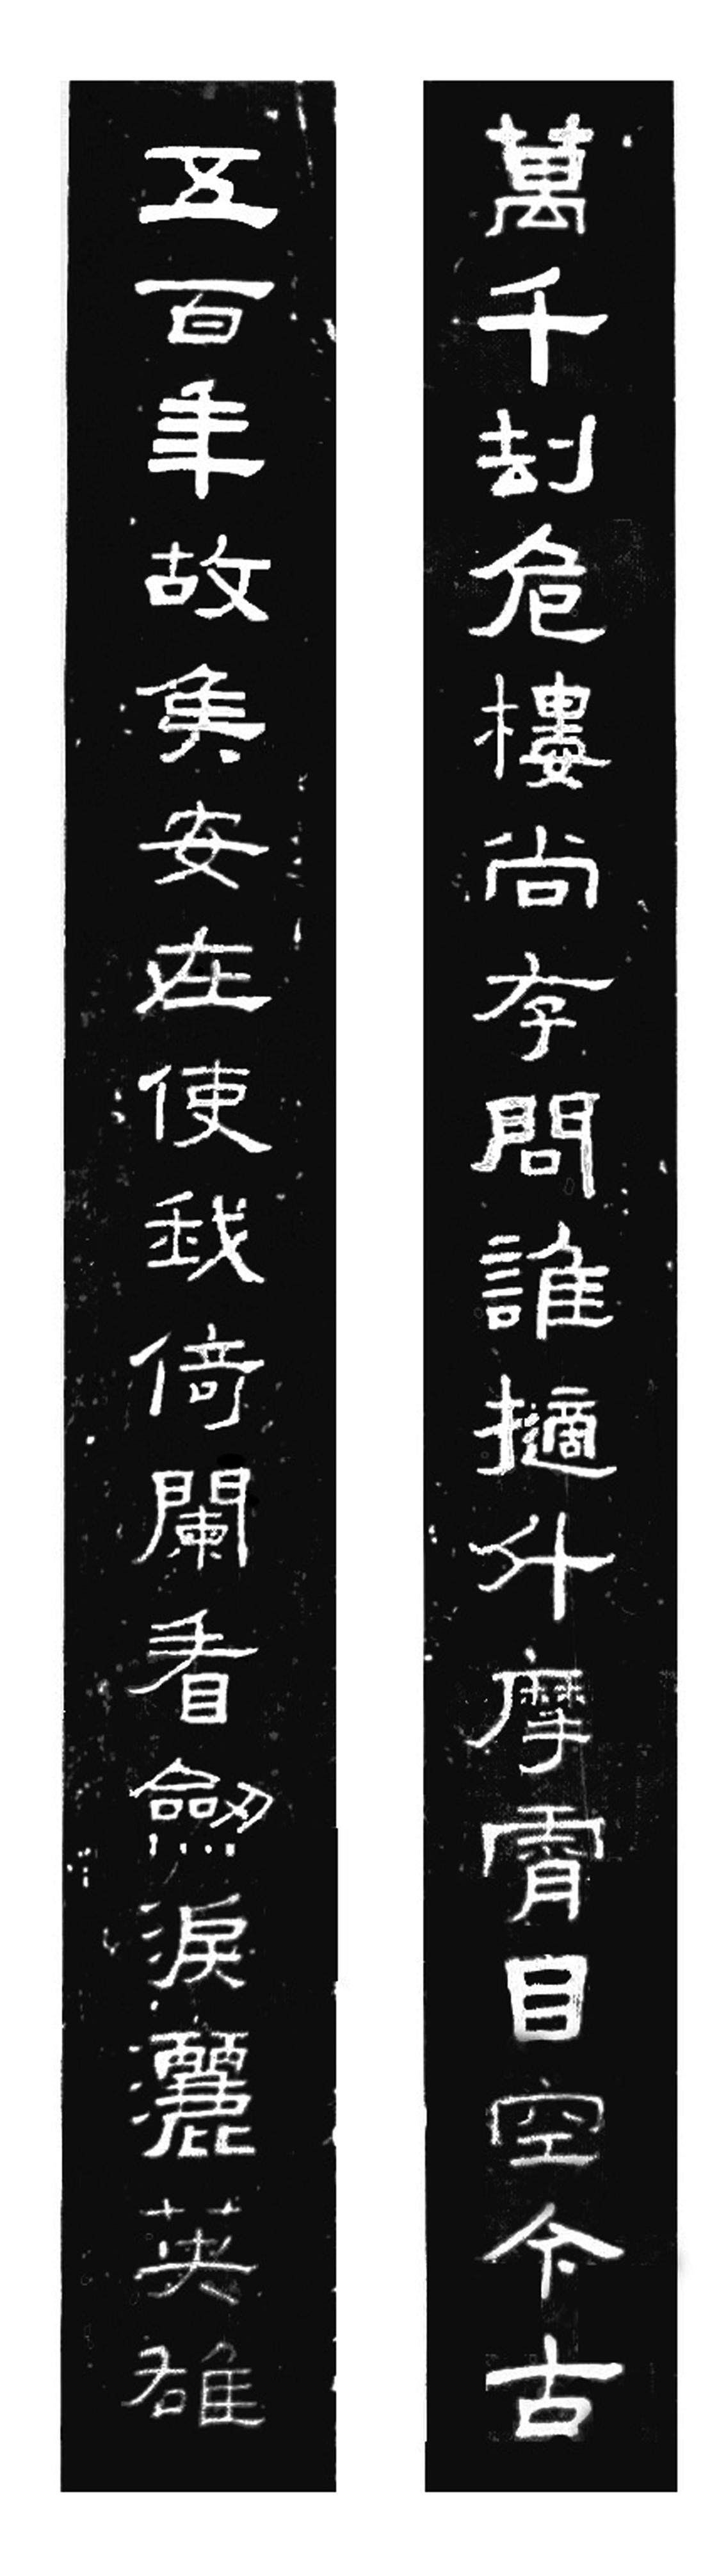 萬千刦危樓尚存問誰擿斗摩霄目空今古
五百年故矦安在使我倚闌看劒淚灑英雄